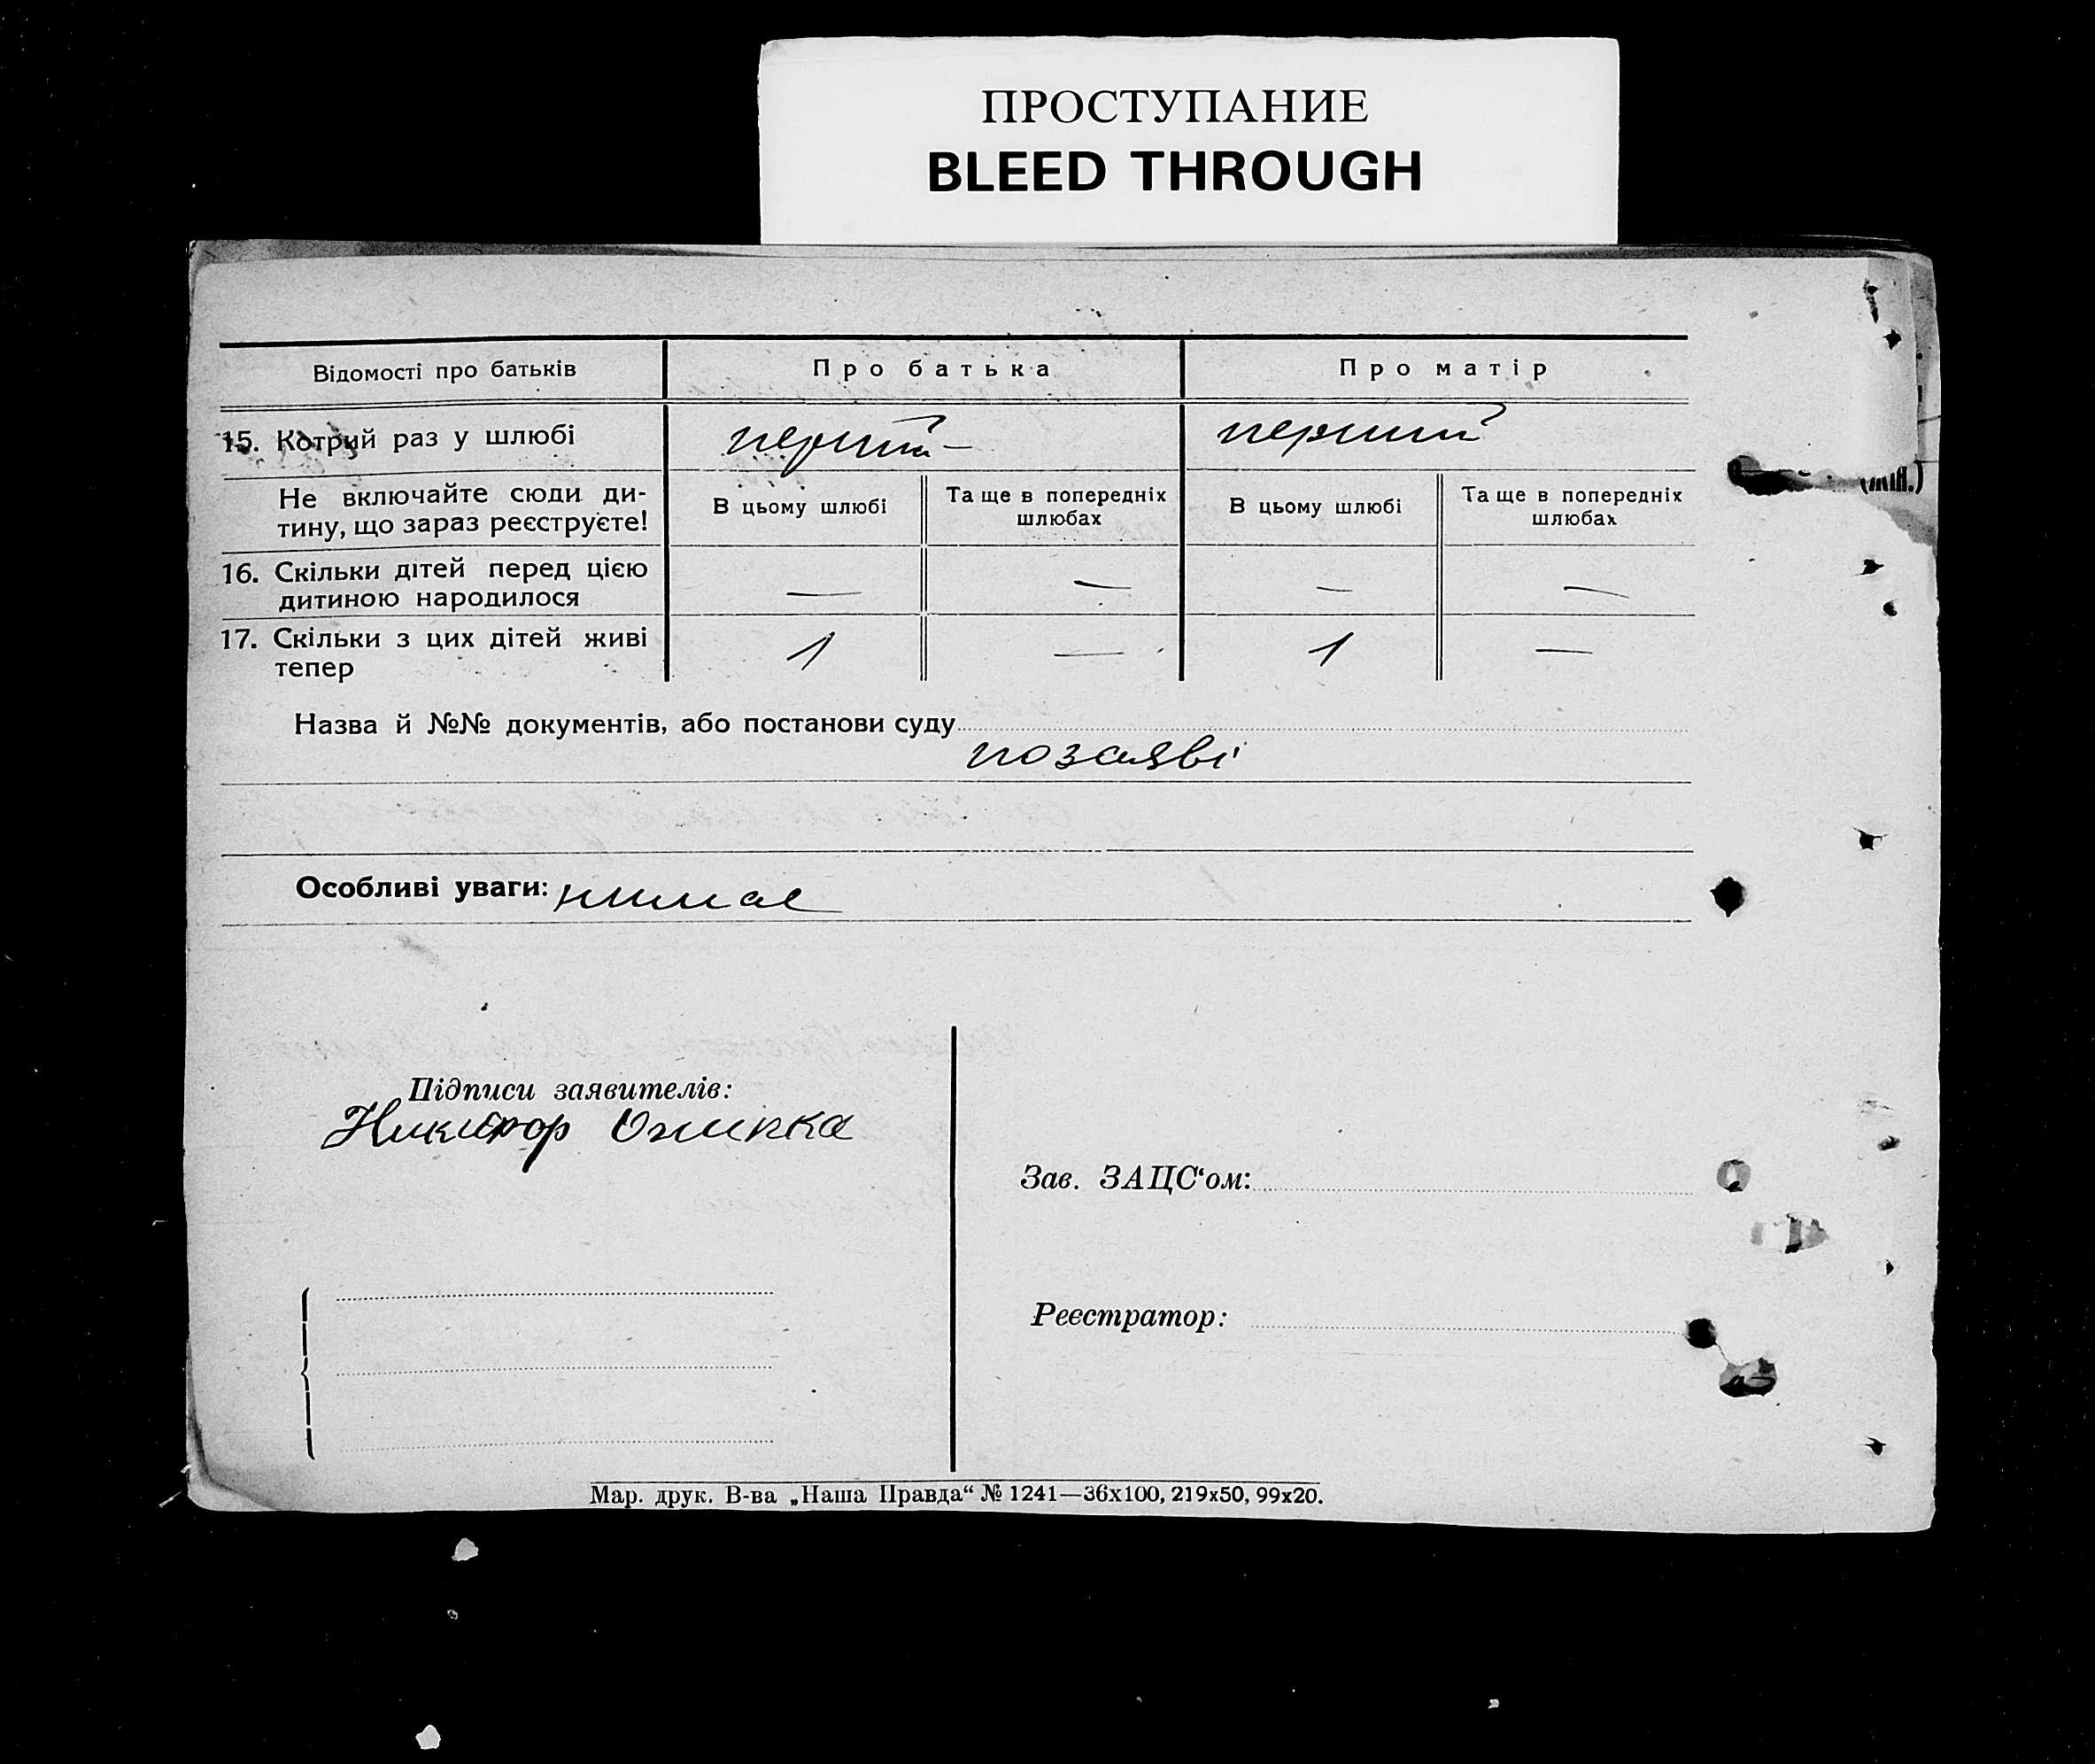 ПРОСТУПАНИЕ
BLEED THROUGH
Відомості про батьків
Про батька
Про матір
15. Котрий раз у шлюбі
перший –
перший
Не включайте сюди ди-
тину, що зараз реєструєте!
В цьому шлюбі
Та ще в попередніх
шлюбах
В цьому шлюбі
Та ще в попередніх
шлюбах
16. Скільки дітей перед цією
дитиною народилося
— — — —
17. Скільки з цих дітей живі
тепер
1 — 1 —
Назва й №№ документів, або постанови суду
позаяві
Особливі уваги: нимае
Підписи заявителів:
Никифор
Зав. ЗАЦС‘ом:
Реєстратор:
Мар. друк. В-ва „Наша Правда“ № 1241—36х100, 219х50, 99х20.